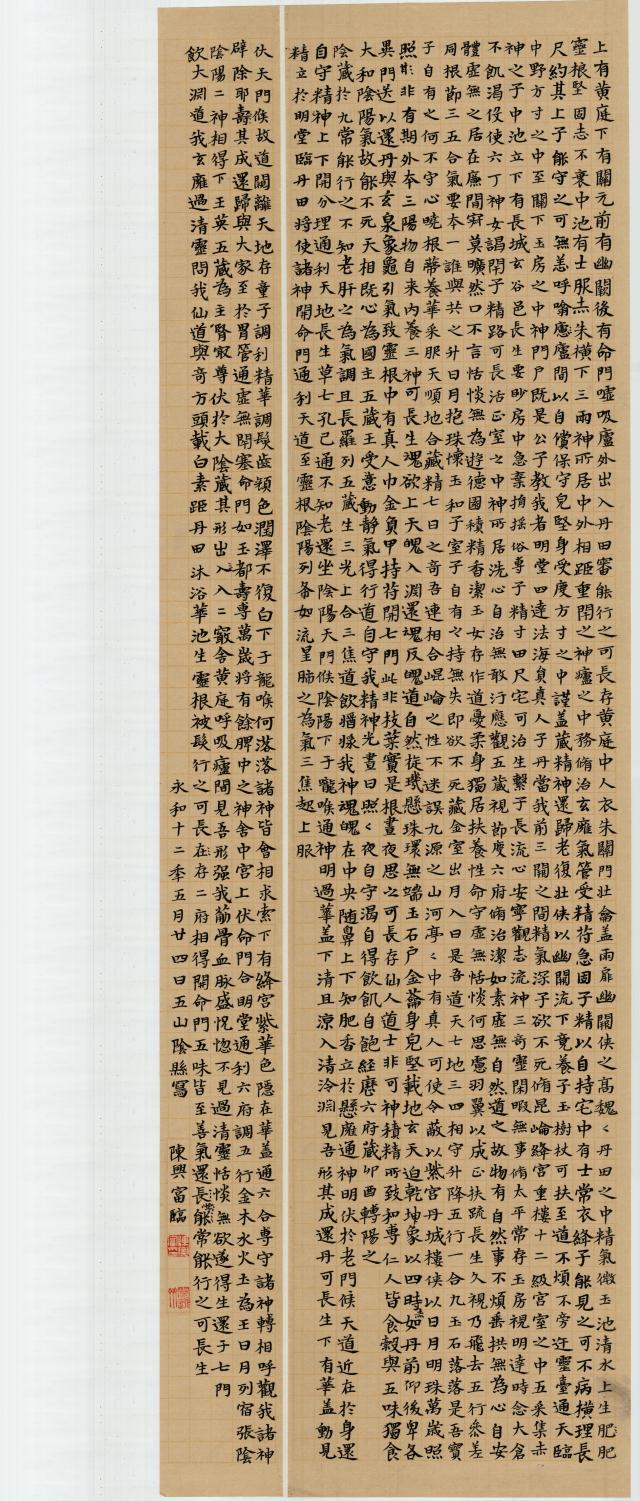 上有黃庭下有關元前有幽闕後有命門噓吸廬外出入丹田審能行之可長存黃庭中人衣朱關門壯籥蓋兩扉幽闕俠之高魏々丹田之中精氣微玉池清水上生肥肥
靈根堅固志不衰中池有士服赤朱橫下三寸神所居中外相距重閉之神廬之中務脩治玄廱氣管受精符急固子精以自持宅中有士常衣絳子能見之可不病橫理長
尺約其上子能守之可無恙呼噏廬間以自償保守完堅身受慶方寸之中謹蓋藏精神還歸老復壯俠以幽闕流下竟養子玉樹杖可扶至道不煩不旁迕靈臺通天臨
中野方寸之中至關下玉房之中神門戶既是公子教我者明堂四達法海員真人子丹當我前三關之間精氣深子欲不死脩崑崙絳宮重樓十二級宮室之中五采集赤
神之子中池立下有長城玄谷邑長生要眇房中急棄捐搖俗專子精寸田尺宅可治生繫子長流心安寧觀志流神三奇靈閑暇無事脩太平常存玉房視明達時念大倉
不飢渴伇使六丁神女謁閉子精路可長活正室之中神所居洗心自治無敢汙歷觀五藏視節度六府脩治潔如素虛無自然道之故物有自然事不煩垂拱無為心自安
體虛無之居在廉間寂莫曠然口不言恬惔無為遊德園積精香潔玉女存作道憂柔身獨居扶養性命守虛無恬惔何思慮羽翼以成正扶疏長生久視乃飛去五行參差
同根節三五合氣要本一誰與共之升日月抱珠懷玉和子室子自有之持無失即欲不死藏金室出月入日是吾道天七地三回相守升降五行一合九玉石落落是吾寶
子自有之何不守心曉根蔕養華采服天順地合藏精七日之奇吾連相合崐崘之性不迷誤九源之山何亭々中有真人可使令蔽以紫宮丹城樓俠以日月明珠萬歲照
照非有期外本三陽物自來內養三神可長生魂欲上天魄入淵還魂反魄道自然旋璣懸珠環無端玉石戶金籥身完堅載地玄天迫乾坤象以四時赤如丹前仰後卑各
異門送以還丹與玄泉象龜引氣致靈根中有真人巾金巾負甲持符開七門此非枝葉實是根晝夜思之可長存仙人道士非可神積精所致和專仁人皆食穀與五味獨食
大和陰陽氣故能不死天相既心為國主五藏王受意動靜氣得行道自守我精神光晝日照々夜自守渴自得飲飢自飽經歷六府藏卯酉轉陽之
陰藏於九常能行之不知老肝之為氣調且長羅列五藏生三光上合三焦道飲醬漿我神魂魄在中央随鼻上下知肥香立於懸廱通神明伏於老門候天道近在於身還
自守精神上下開分理通利天地長生草七孔已通不知老還坐陰陽天門候陰陽下于嚨喉通神明過華蓋下清且涼入清泠淵見吾形其成還丹可長生下有華蓋動見
精立於明堂臨丹田將使諸神開命門通利天道至靈根陰陽列布如流星肺之為氣三焦起上服
伏天門候故道闚離天地存童子調利精華調髮齒顏色潤澤不復白下于嚨喉何落落諸神皆會相求索下有絳宮紫華色隱在華蓋通六合專守諸神轉相呼觀我諸神
辟除耶其成還歸與大家至於胃管通虛無閉塞命門如玉都壽專萬歲將有餘脾中之神舍中宮上伏命門合明堂通利六府調五行金木水火土為王日月列宿張陰
陰陽二神相得下玉英五藏為主腎最尊伏於大陰藏其形出入二竅舍黃庭呼吸廬間見吾形強我筋骨血脈盛恍惚不見過清靈恬惔無欲遂得生還于七門
飲大淵道我玄廱過清靈問我仙道與奇方頭載白素距丹田沐浴華池生靈根被髮行之可長存二府相得開命門五味皆至善氣還長能常能行之可長生
永和十二年五月廿四日五山陰縣寫 陳興富臨